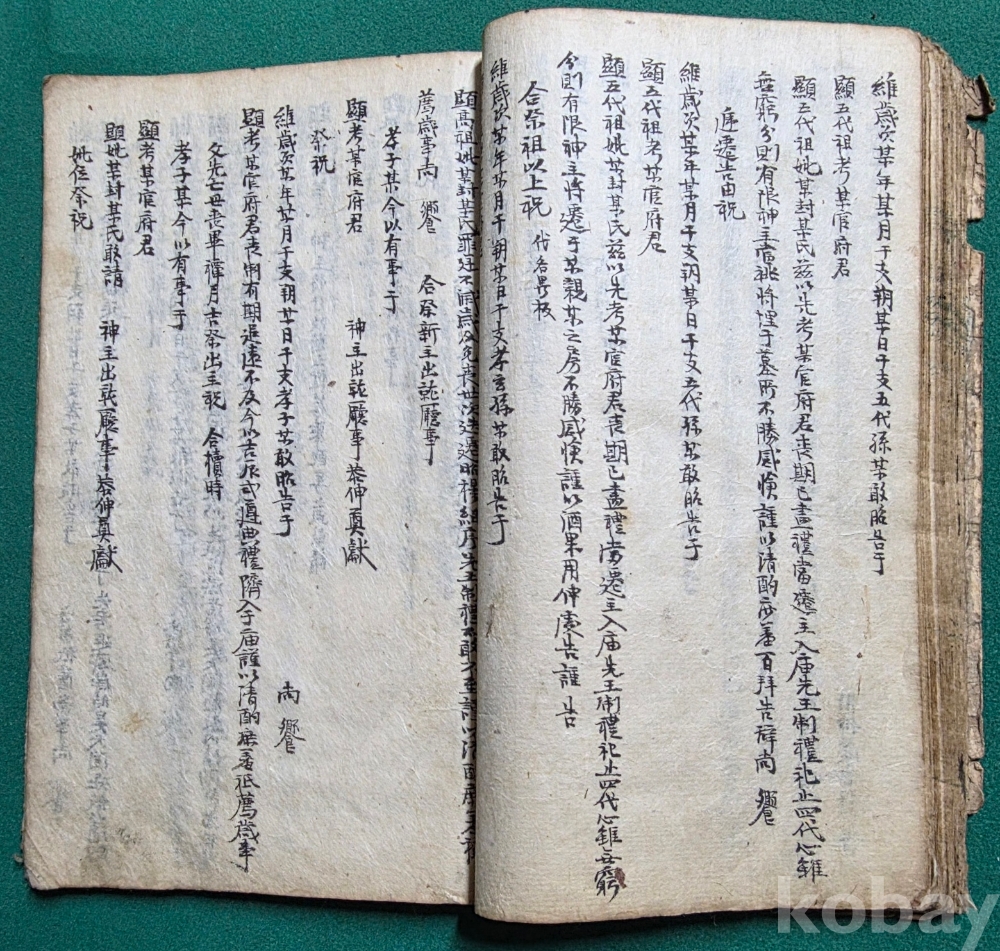 維歲次某年某月干支朔某日干支五代孫某敢昭告于
顯五代祖考某官府君
顯五代祖妣某封某氏玆以先考某官府君喪期已盡禮當遷主入庙先王制禮祀止四代心雖
無窮分則有限神主當祧將埋于墓所不勝感愴謹以清酌庶羞百拜告辭尚 饗
遷告由祝
維歲次某年某月干支朔某日干支五代孫某敢昭告于
顯五代祖考某官府君
顯五代祖妣某封某氏玆以先考某官府君喪期已盡禮當遷主入庙先王制禮祀止四代心雖無窮
分則有限神主將遷于某親某之房不勝感愴謹以酒果用伸虔告謹告
合祭祖以上祝 代各異板
維歲次某年某月干朔某日干支孝玄孫某敢昭告于
顯高祖妣某封某氏罪逆不滅歲及免喪世次迭遷昭穆繼序先王制禮不敢不至謹以清酌庶羞祗
薦歲事尚 饗 合祭新主出就廳事
孝子某今以有事于
顯考某官府君 神主出就廳事恭伸奠獻
祭祝
維歲次某年某月干支朔某日干支孝子某敢昭告于
顯考某官府君喪制有期追遠不及今以吉辰式遵典禮隮入于庙謹以清酌庶羞祗薦歲事
尚 饗
父先亡母喪畢禫月吉祭出主祝 合櫝時
孝子某今以有事于
顯考某官府君
顯妣某封某氏敢請 神主出就廳事恭伸奠獻
妣位祭祝
kobay